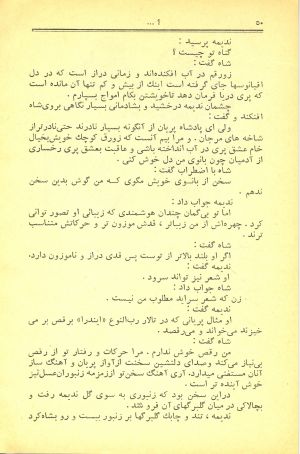 ۵۰
۱ ...
ندیمه پرسید :
گناه تو چیست ؟
شاه گفت :
زورقم در آب افکنده‌اند و زمانی دراز است که در دل
اقیانوسها جای گرفته است اینك از بیش و کم تنها آن مانده است
که پری دریا فرمان دهد تاخویشتن بکام امواج بسپارم .
چشمان ندیمه درخشید و بشادمانی بسیار نگاهی بروی‌شاه
افکند و گفت :
ولی ای پادشاه پریان از آنگونه بسیار نادرند حتی‌نادرتراز
شاخه های مرجان . و مرا بیم آنست که زورق کوچك خویش‌بخیال
خام عشق پری در آب انداخته باشی و عاقبت بعشق پری رخساری
از آدمیان چون بانوی من دل خوش کنی .
شاه با اضطراب گفت :
سخن از بانوی خویش مگوی که من گوش بدین سخن
ندهم .
ندیمه جواب داد :
اما تو بی‌گمان چندان هوشمندی که زیبائی او تصور توانی
کرد . چهره‌اش از من زیباتر ، قدش موزون تر و حرکاتش متناسب
ترند .
شاه گفت :
اگر او بلند بالاتر از توست پس قدی دراز و ناموزون دارد.
ندیمه گفت :
او شعر نیز تواند سرود .
شاه جواب داد :
زن که شعر سراید مطلوب من نیست .
ندیمه گفت :
او مثال پریانی که در تالار رب‌النوع «ایندرا» برقص بر می
خیزند می‌خواند و می‌رقصد .
شاه گفت :
من رقص خوش ندارم . مرا حرکات و رفتار تو از رقص
بی‌نیاز می‌کند وصدای دلنشین سخنت ازآواز پریان و آهنگ ساز
آنان مستغنی میدارد. آری آهنگ سخن‌تو اززمزمه زنبوران‌عسل‌نیز
خوش آینده تر است .
دراین سخن بود که زنبوری به سوی گل ندیمه رفت و
بچالاکی در میان گلبرگهای آن فرو شد .
ندیمه ، تند و چابك گلبرگها بر زنبور ببست و رو بشاه‌کرد